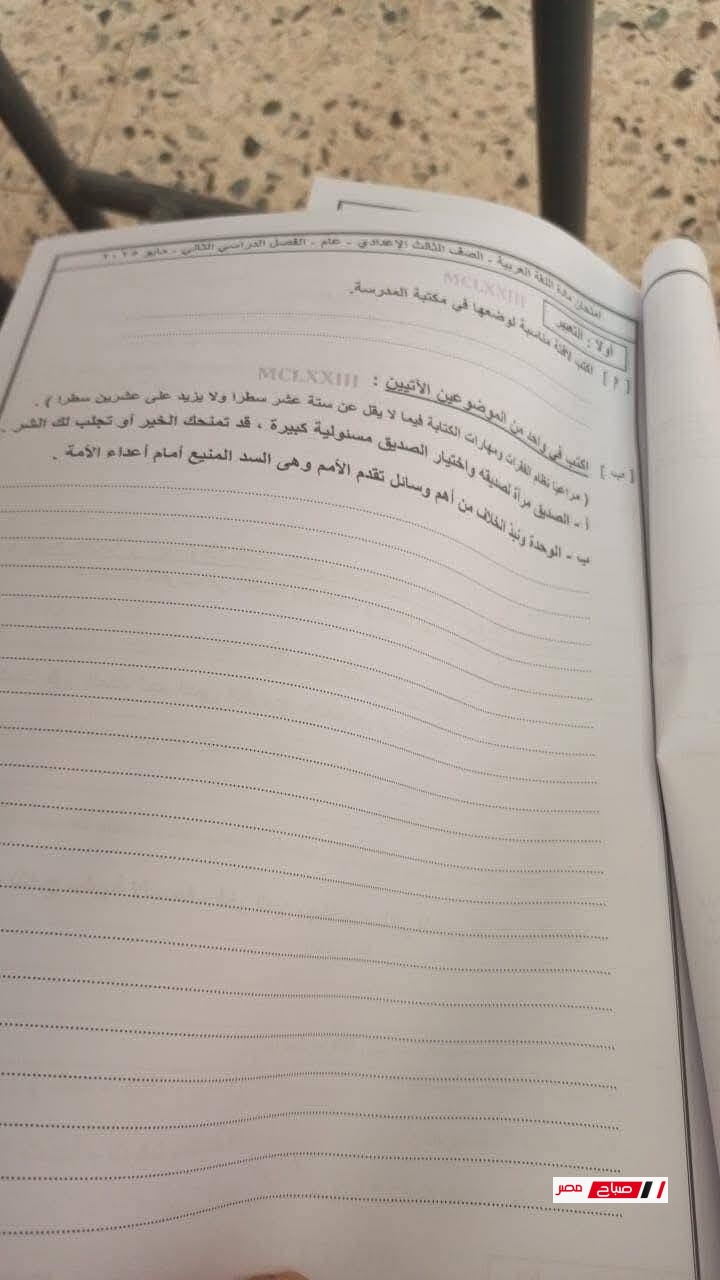 امتحان مادة اللغة العربية - الصف الثالث الإعدادي - عام - الفصل الدراسي الثاني - مايو ٢٠٢٥
MCLXXIII
أولا : التعبير
[ أ ] اكتب لافتة مناسبة لوضعها فى مكتبة المدرسة.
MCLXXIII
[ ب ] اكتب فى واحد من الموضوعين الآتيين :
( مراعيا نظام الفقرات ومهارات الكتابة فيما لا يقل عن ستة عشر سطرا ولا يزيد على عشرين سطرا ) .
أ - الصديق مرآة لصديقه واختيار الصديق مسئولية كبيرة ، قد تمنحك الخير أو تجلب لك الشر .
ب - الوحدة ونبذ الخلاف من أهم وسائل تقدم الأمم وهى السد المنيع أمام أعداء الأمة .
صباح مصر